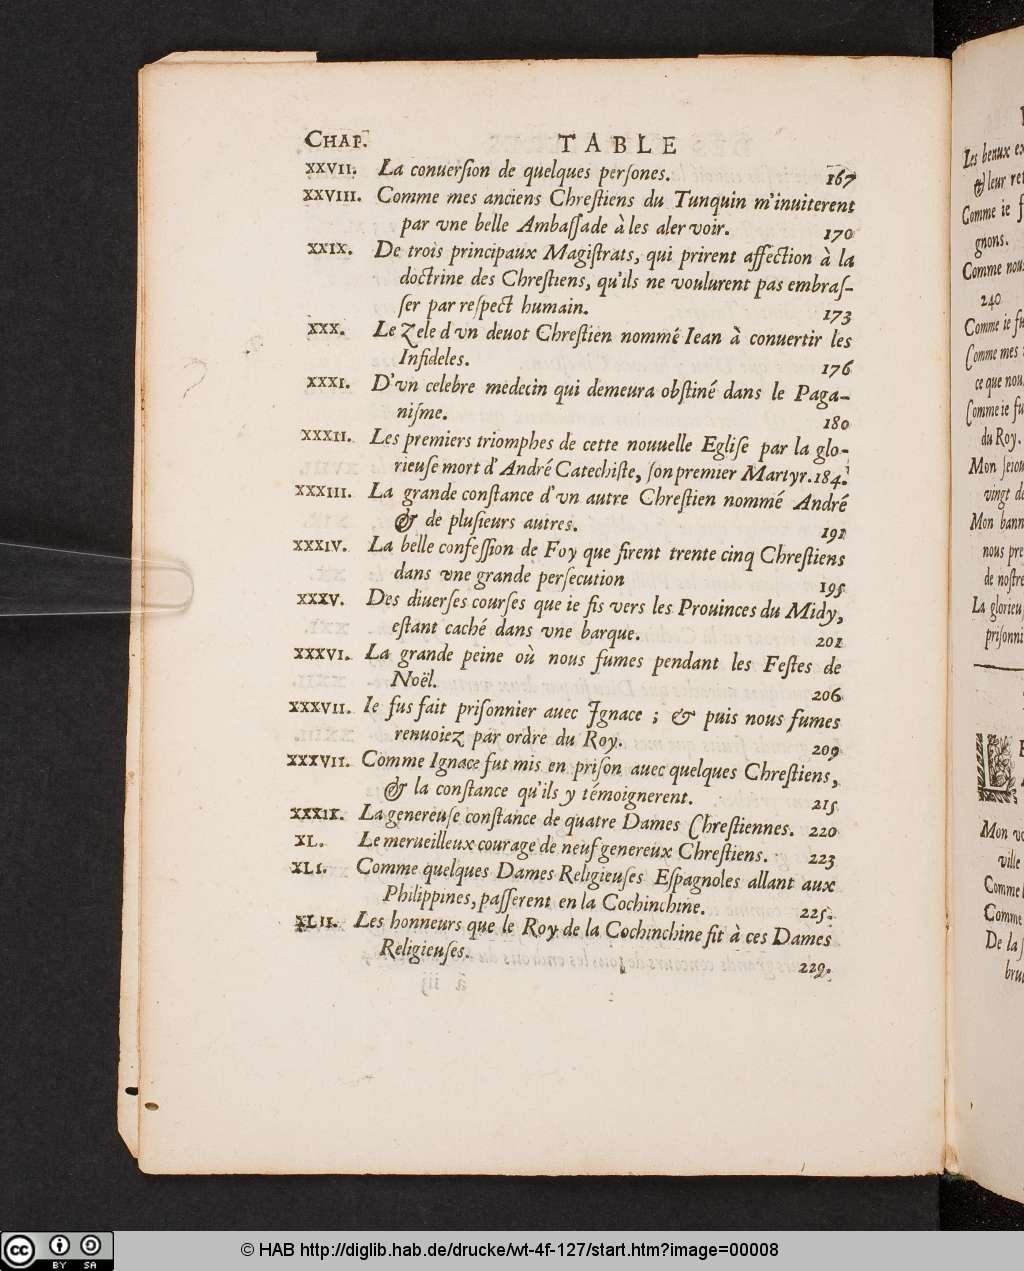 CHAP. TABLE
XXVII. La conuersion de quelques persones. 167
XXVIII. Comme mes anciens Chrestiens du Tunquin m'inuiterent
par vne belle Ambassade à les aler voir. 170
XXIX. De trois principaux Magistrats, qui prirent affection à la
doctrine des Chrestiens, qu'ils ne voulurent pas embras-
ser par respect humain. 173
XXX. Le Zele d vn deuot Chrestien nommé Iean à conuertir les
Infideles. 176
XXXI. D'vn celebre medecin qui demeura obstiné dans le Paga-
nisme. 180
XXXII. Les premiers triomphes de cette nouuelle Eglise par la glo-
rieuse mort d'André Catechiste, son premier Martyr. 184.
XXXIII. La grande constance d'vn autre Chrestien nommé André
& de plusieurs autres. 191
XXXIV. La belle confession de Foy que firent trente cinq Chrestiens
dans vne grande persecution 195
XXXV. Des diuerses courses que ie fis vers les Prouinces du Midy,
estant caché dans vne barque. 201
XXXVI. La grande peine où nous fumes pendant les Festes de
Noël. 206
XXXVII. Ie fus fait prisonnier auec Ignace ; & puis nous fumes
renuoiez par ordre du Roy. 209
XXXVII. Comme Ignace fut mis en prison auec quelques Chrestiens,
& la constance qu'ils y témoignerent. 215
XXXIX. La genereuse constance de quatre Dames Chrestiennes. 220
XL. Le merueilleux courage de neuf genereux Chrestiens. 223
XLI. Comme quelques Dames Religieuses Espagnoles allant aux
Philippines, passerent en la Cochinchine. 225.
XLII. Les honneurs que le Roy de la Cochinchine fit à ces Dames
Religieuses. 229.
Les beaux
& leur
Comme ie
gnons.
Comme nous
240
Comme ie
Comme mes
ce que nou
Comme ie fu
du Roy.
Mon
vingt
Mon
nous
de nostre
La
Mon
ville
Comme
Comme
De la
BY SA
© HAB http://diglib.hab.de/drucke/wt-4f-127/start.htm?image=00008